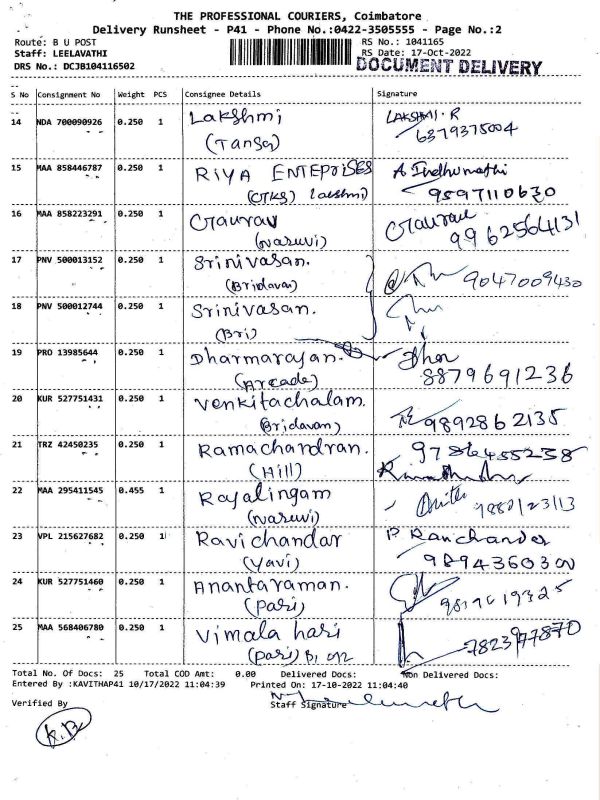 THE PROFESSIONAL COURIERS, Coimbatore
Delivery Runsheet - P41 - Phone No.:0422-3505555 - Page No.:2
Route: B U POST
RS No.: 1041165
Staff: LEELAVATHI
RS Date: 17-Oct-2022
DRS No.: DCJB104116502
DOCUMENT DELIVERY
S No Consignment No Weight PCS Consignee Details Signature
14 NDA 700090926 0.250 1 Lakshmi LAKSHMI. R
(Tansa) 6379375004
15 MAA 858446787 0.250 1 RIYA ENTEPRISES A Indhumathi
(OTKS) Lakshmi) 9597110630
16 MAA 858223291 0.250 1 Gaurav Gaurav
(Naruvi) 9962564131
17 PNV 500013152 0.250 1 Srinivasan.
(Bridavan) 9047009430
18 PNV 500012744 0.250 1 Srinivasan.
(Bri)
19 PRO 13985644 0.250 1 Dharmarajan.
(Arcade) 8879691236
20 KUR 527751431 0.250 1 Venkitachalam.
(Bridavan) 9892862135
21 TRZ 42450235 0.250 1 Ramachandran. 9786455238
(Hill)
22 MAA 295411545 0.455 1 Rajalingam
(Naruvi)
23 VPL 215627682 0.250 1 Ravichandar P Ravichander
(Yavi)
24 KUR 527751460 0.250 1 Anantaraman.
(Pari) 9819619325
25 MAA 568406780 0.250 1 Vimala hari
(Pari) 7823977870
Total No. Of Docs: 25 Total COD Amt: 0.00 Delivered Docs: Non Delivered Docs:
Entered By :KAVITHAP41 10/17/2022 11:04:39 Printed On: 17-10-2022 11:04:40
Verified By Staff Signature